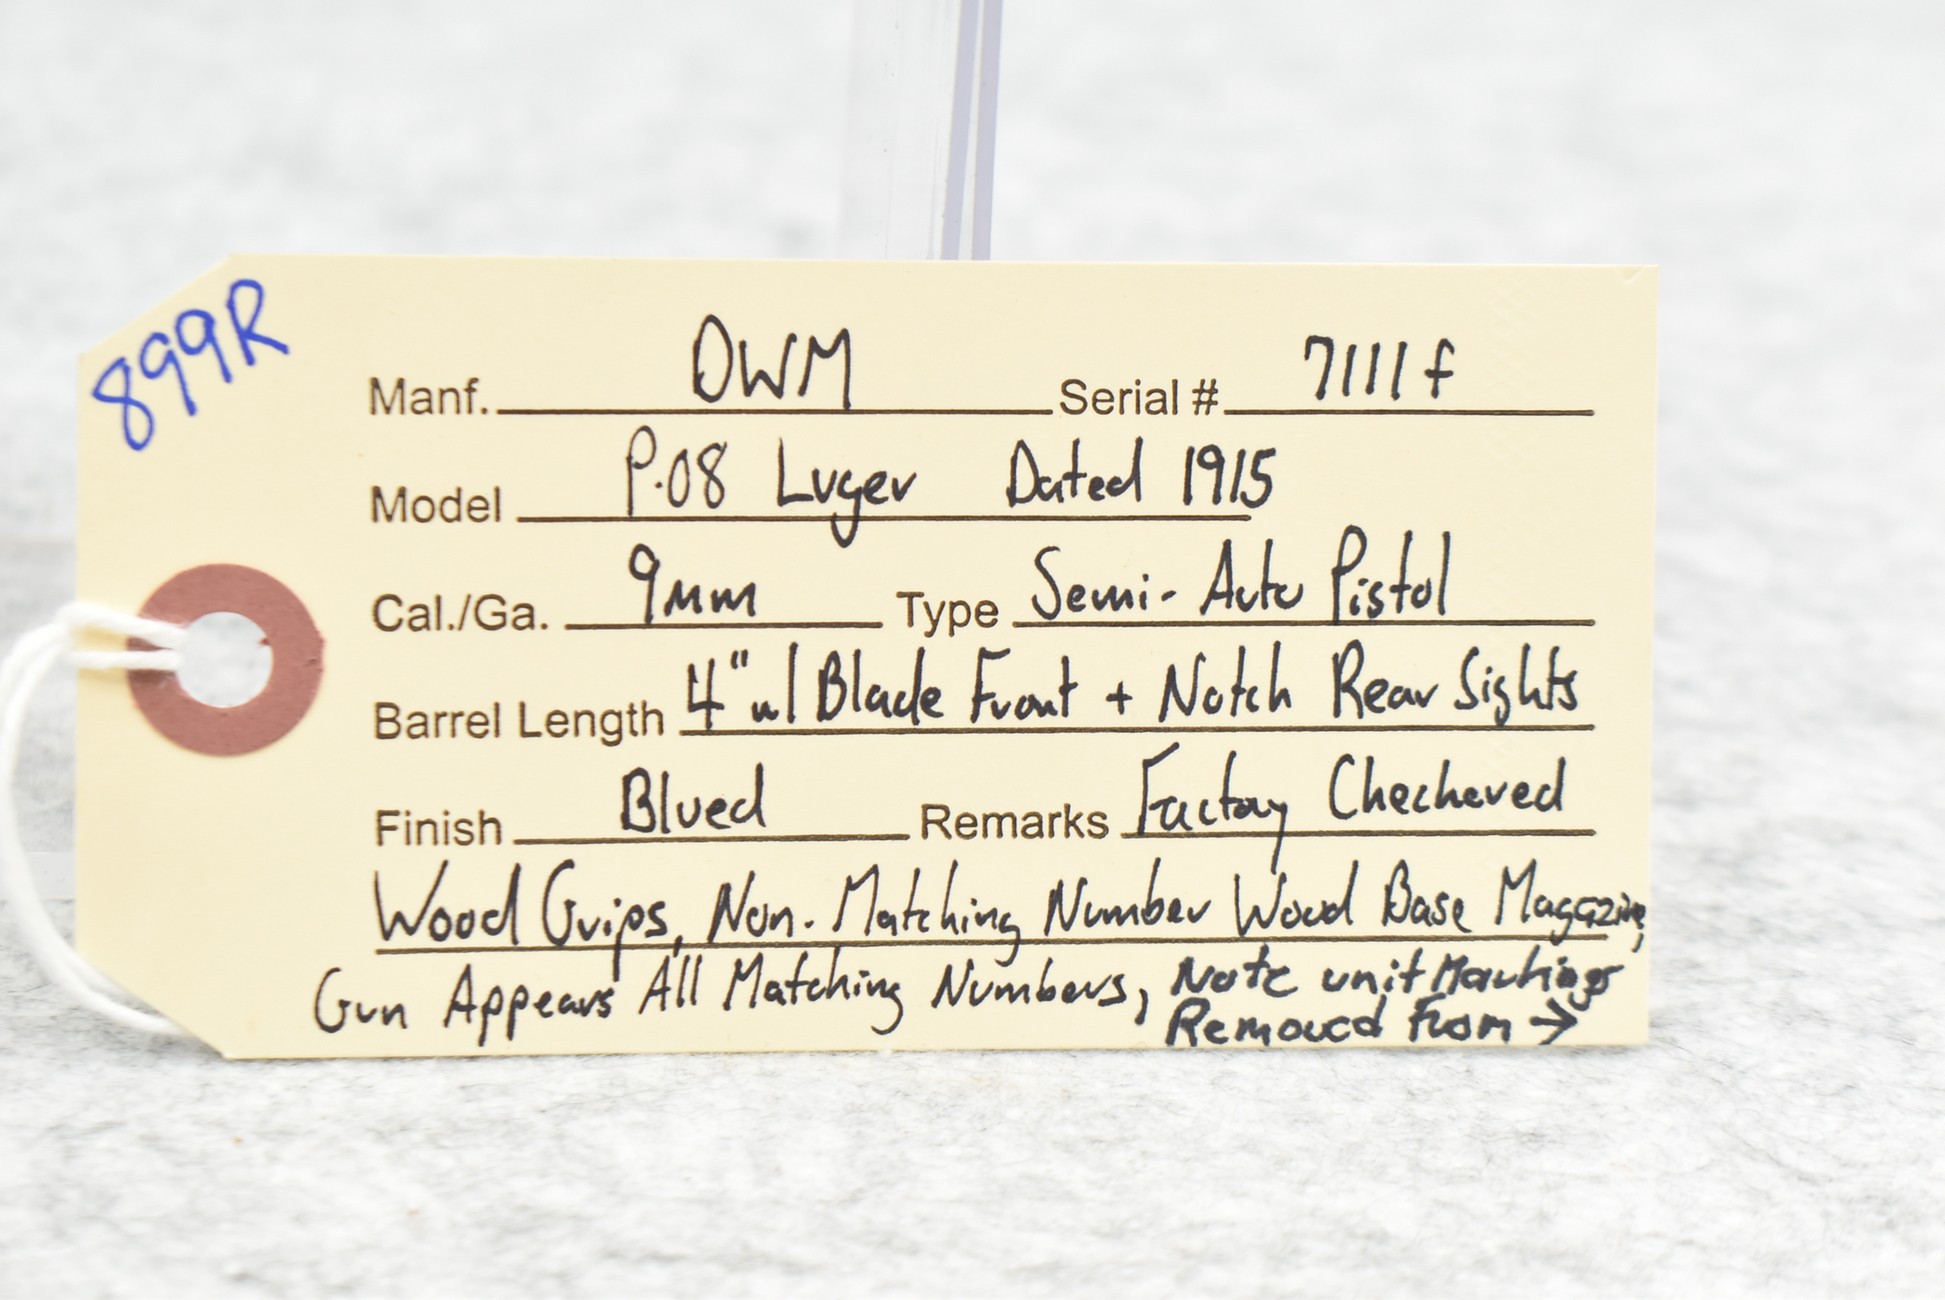 899R
Manf. DWM Serial # 7111 f
Model P.08 Luger Dated 1915
Cal./Ga. 9mm Type Semi-Auto Pistol
Barrel Length 4" w/ Blade Front + Notch Rear Sights
Finish Blued Remarks Factory Checkered
Wood Grips, Non-Matching Number Wood Base Magazine,
Gun Appears All Matching Numbers, Note unit Markings
Removed From →